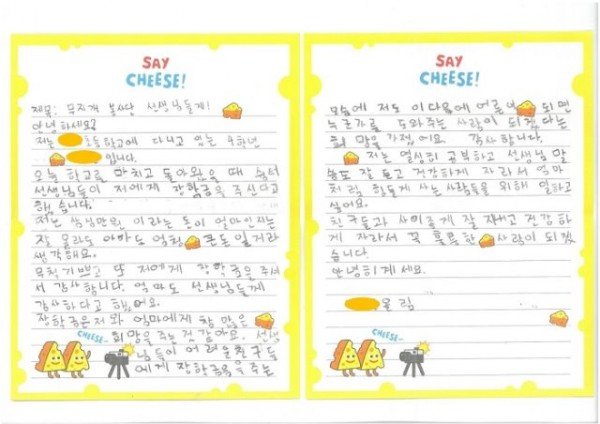 SAY
CHEESE!
제목: 무지개 봉사단 선생님들께!
안녕하세요?
저는 초등학교에 다니고 있는 4학년
입니다.
오늘 학교를 마치고 돌아왔을 때
선생님들이 저에게 장학금을 주신다고
했습니다.
저는 삼십만원 이라는 돈이 얼마인지는
잘 몰라도 아마도 엄청 큰돈일거라
생각해요.
무척 기쁘고 또 저에게 장학금을 주셔
서 감사합니다. 엄마도 선생님들께
감사하다고 했어요.
장학금은 저와 엄마에게 참 많은
CHEESE~
희망을 주는 것 같아요. 선생
님들이 어려운 친구들
에게 장학금을 주는
SAY
CHEESE!
모습에 저도 이 다음에 어른이 되면
누군가를 도와주는 사람이 되겠다는
희망을 가졌어요. 감사합니다.
저는 열심히 공부하고 선생님 말
씀도 잘 듣고 건강하게 자라서 엄마
처럼 힘들게 사는 사람들을 위해 일하고
싶어요.
친구들과 사이좋게 잘 지내고 건강하
게 자라서 꼭 훌륭한 사람이 되겠
습니다.
안녕히계세요.
올림
CHEESE~